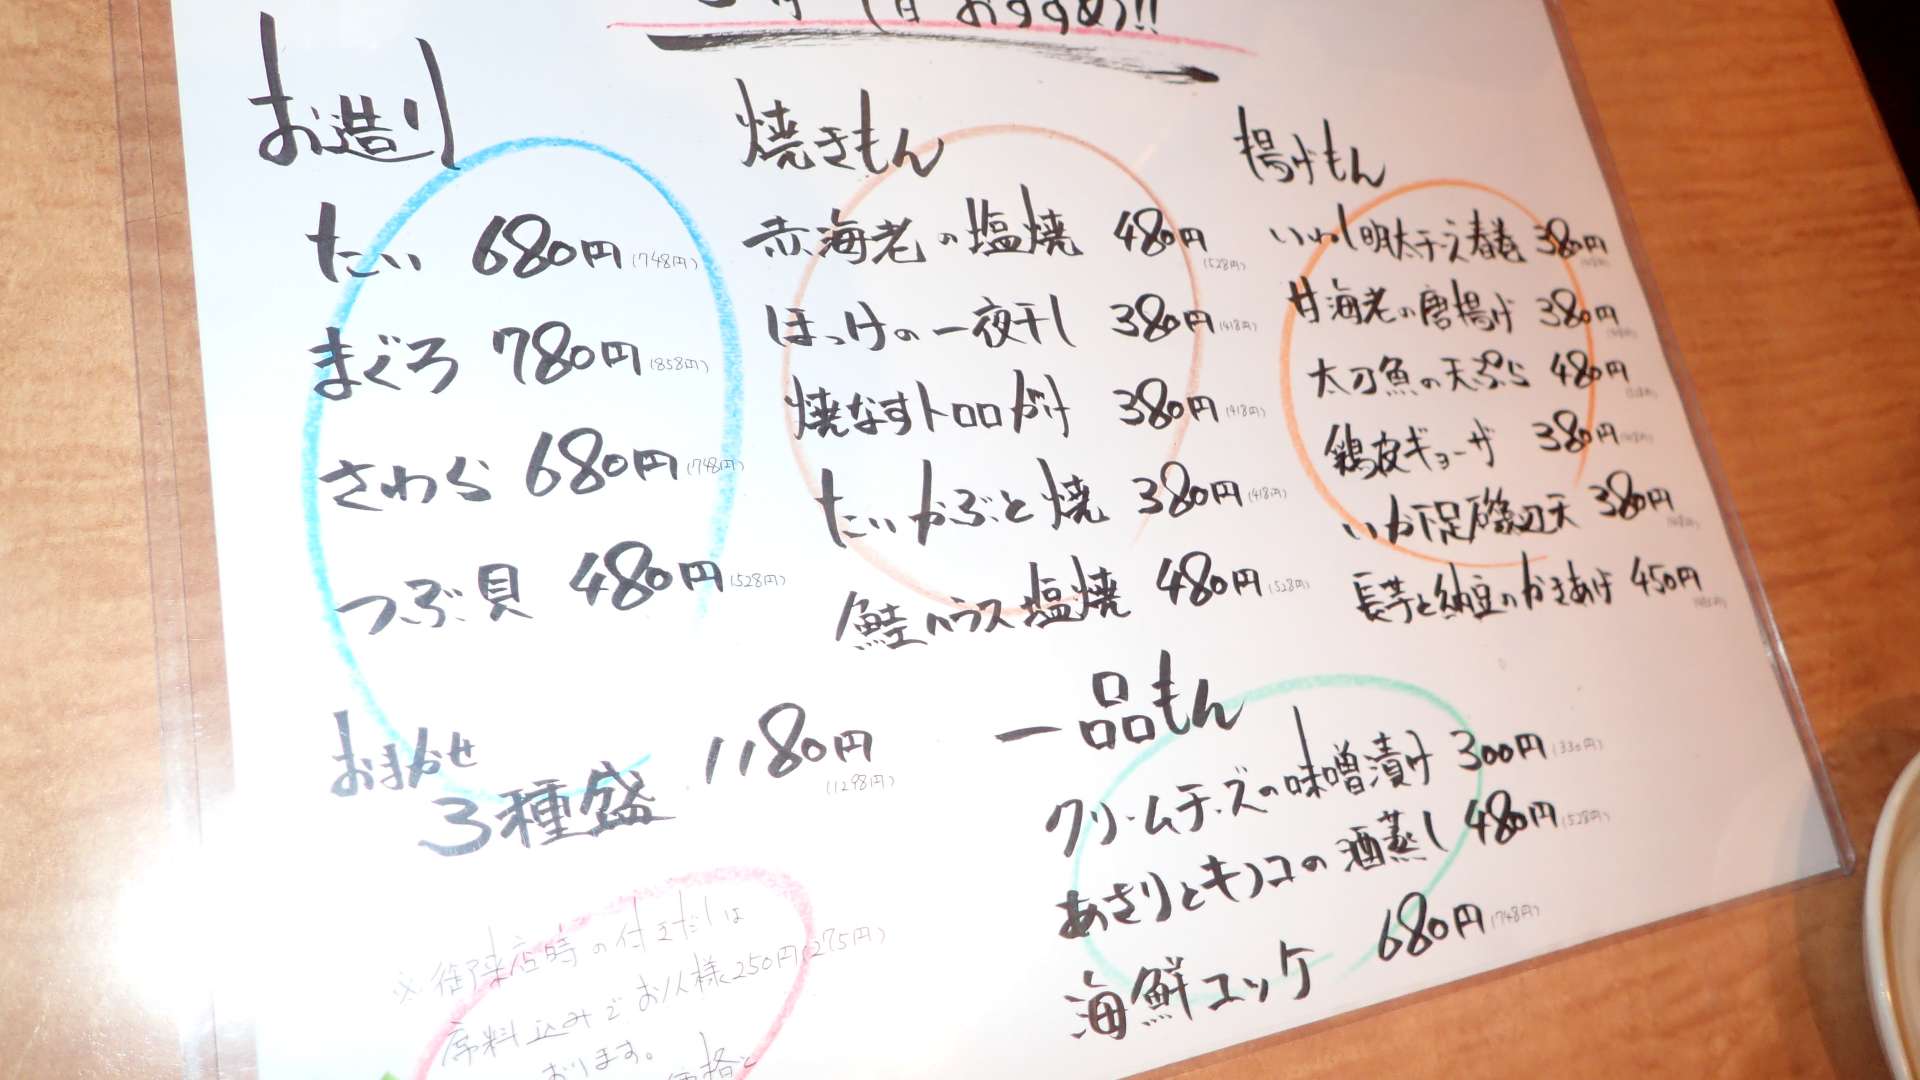 おすすめ!!
お造り
たい 680円(748円)
まぐろ 780円(858円)
さわら 680円(748円)
つぶ貝 480円(528円)
おまかせ
3種盛 1180円
(1298円)
焼きもん
赤海老の塩焼 480円
(528円)
ほっけの一夜干し 380円(418円)
焼なすトロロがけ 380円(418円)
たいかぶと焼 380円(418円)
鮭ハラス塩焼 480円(528円)
揚げもん
いわし明太チーズ春巻 380円
甘海老の唐揚げ 380円
太刀魚の天ぷら 480円
鶏皮ギョーザ 380円
いか下足磯辺天 380円
長芋と納豆のかきあげ 450円
一品もん
クリームチーズの味噌漬け 300円(330円)
あさりとキノコの酒蒸し 480円(528円)
海鮮ユッケ 680円(748円)
※御来店時の付きだしは
席料込みでお1人様250円(275円)
おります。
価格と